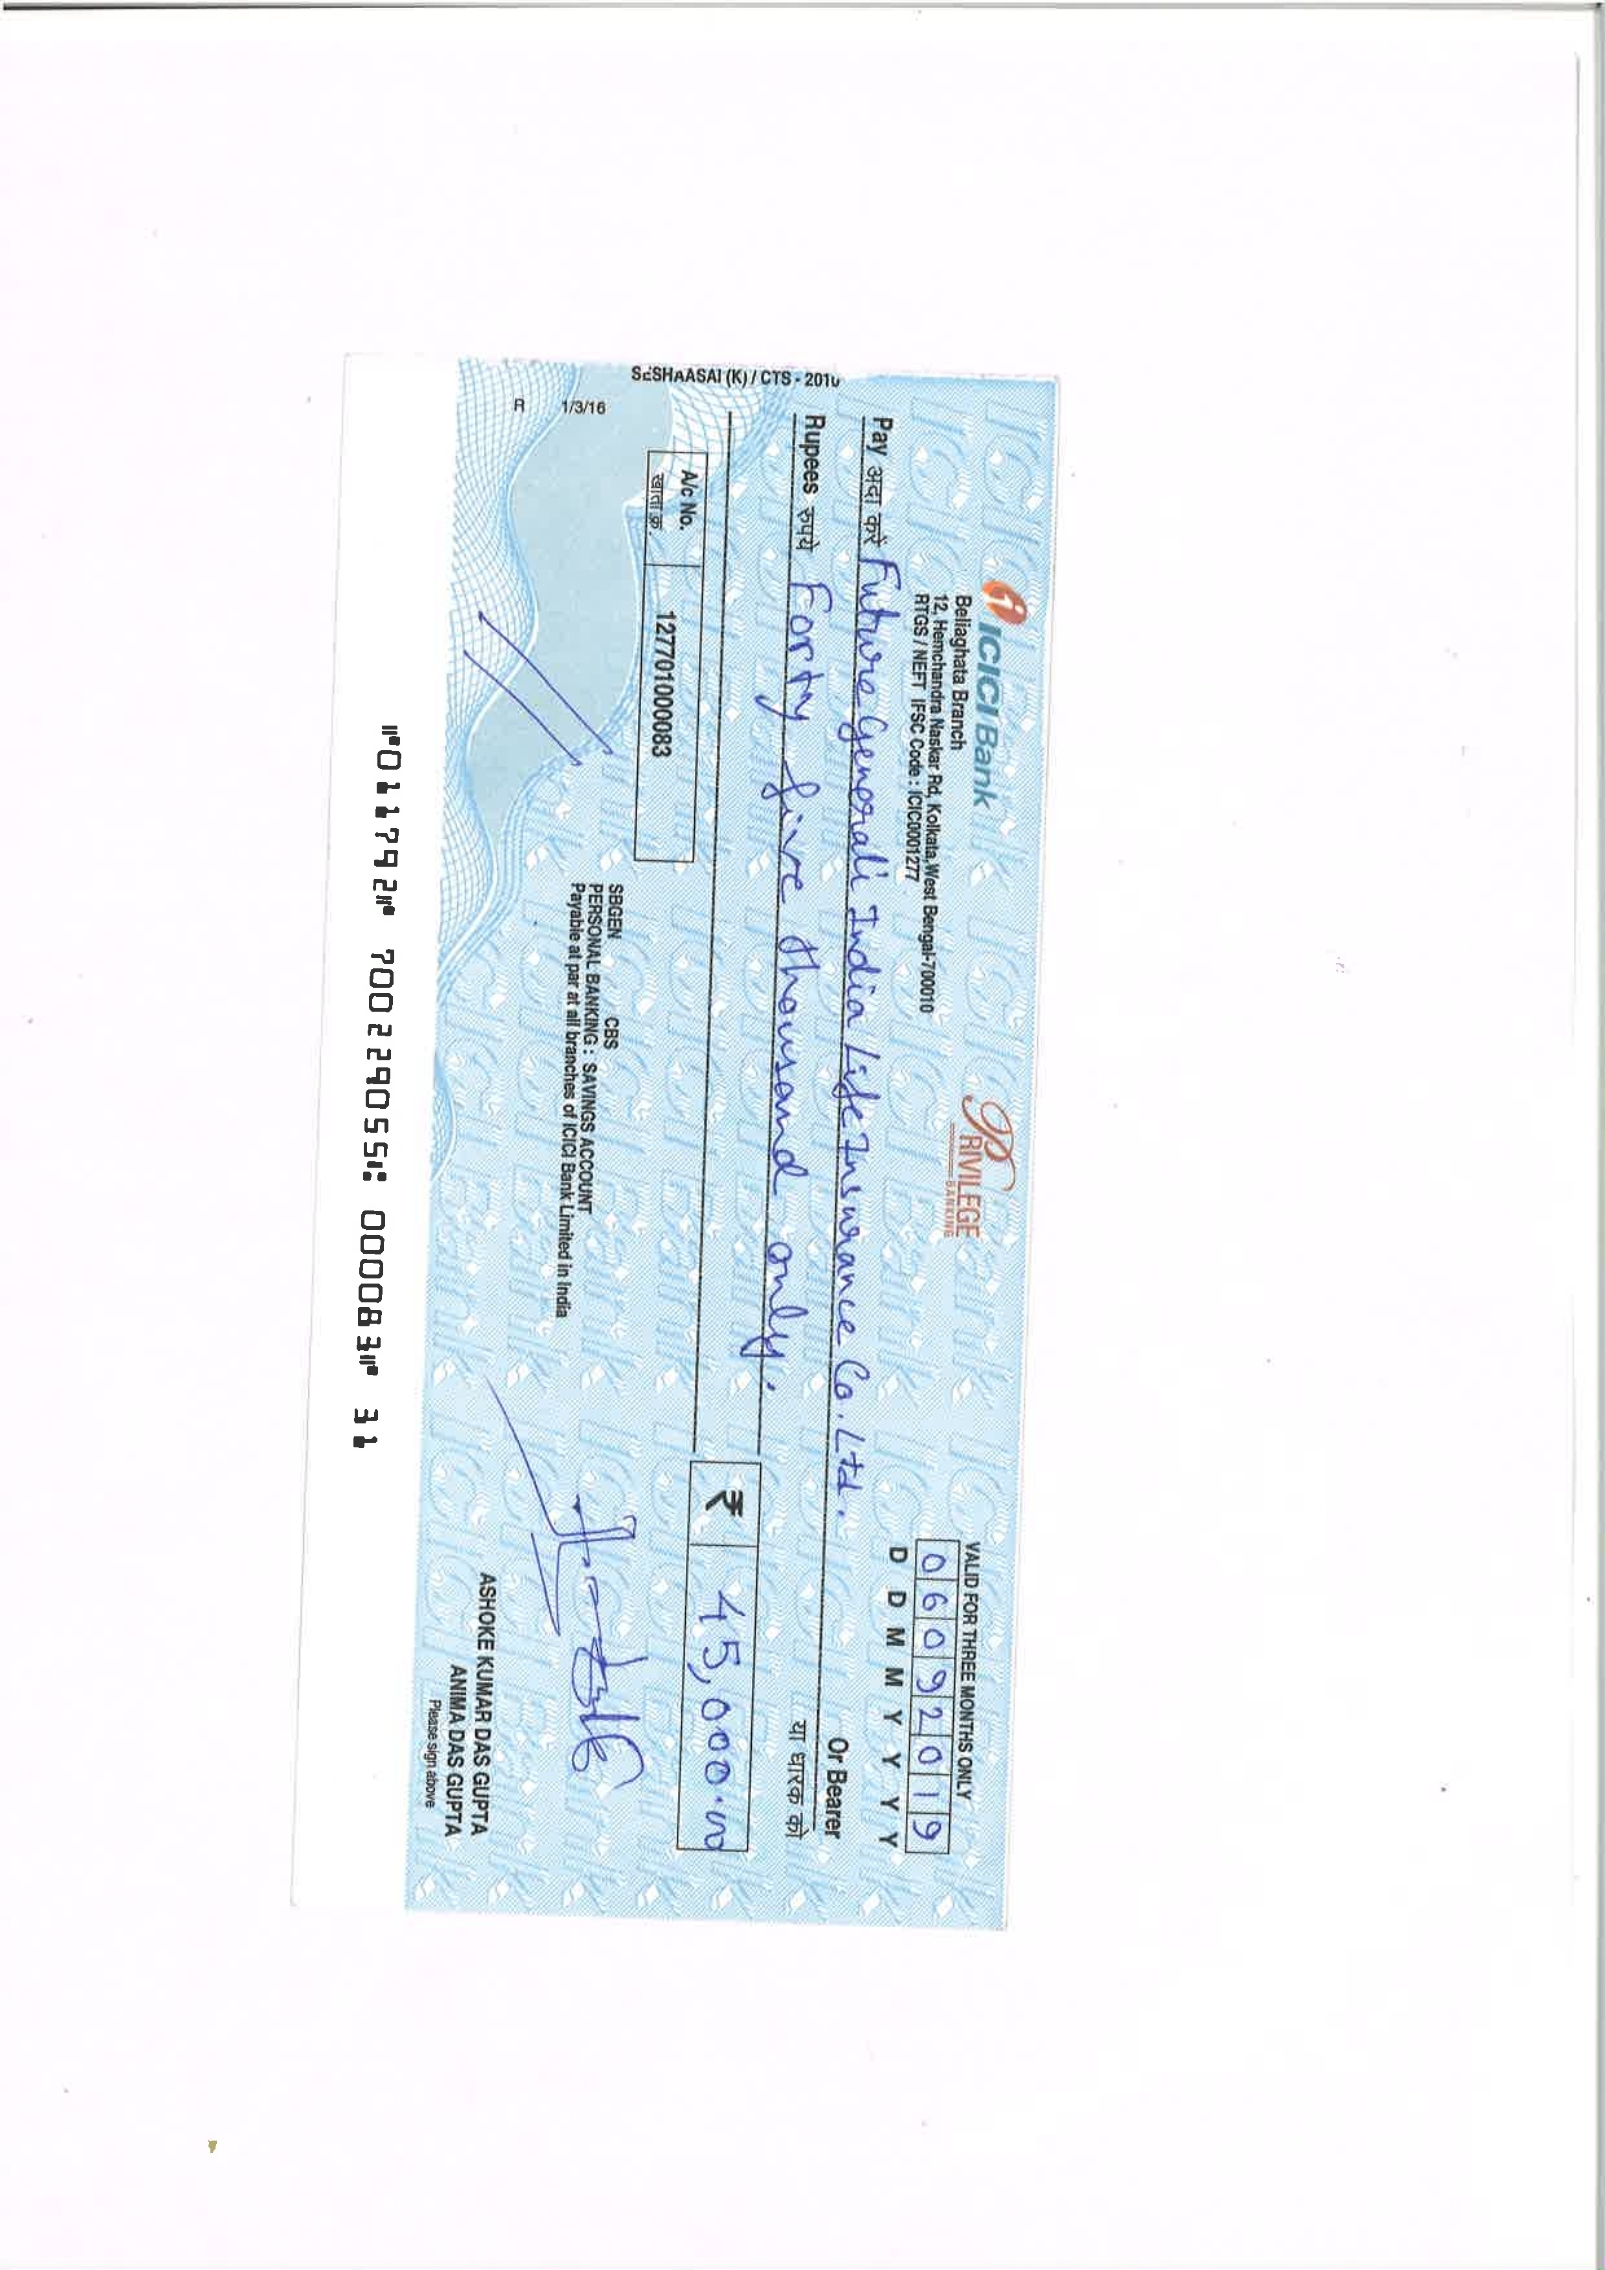 ICICI Bank
Beliaghata Branch
12, Hemchandra Naskar Rd, Kolkata, West Bengal-700010
RTGS / NEFT IFSC Code : ICIC0001277
PRIVILEGE
BANKING
VALID FOR THREE MONTHS ONLY
06092019
D D M M Y Y Y Y
Pay अदा करें Future Generali India Life Insurance Co. Ltd.
Or Bearer
या धारक को
Rupees रुपये Forty five thousand only.
₹ 45,000.00
A/c No.
खाता क्र.
127701000083
SBGEN CBS
PERSONAL BANKING : SAVINGS ACCOUNT
Payable at par at all branches of ICICI Bank Limited in India
SESHAASAI (K) / CTS - 2010
1/3/16
R
ASHOKE KUMAR DAS GUPTA
ANIMA DAS GUPTA
Please sign above
⑈011792⑈ 700229055⑆ 000083⑈ 31